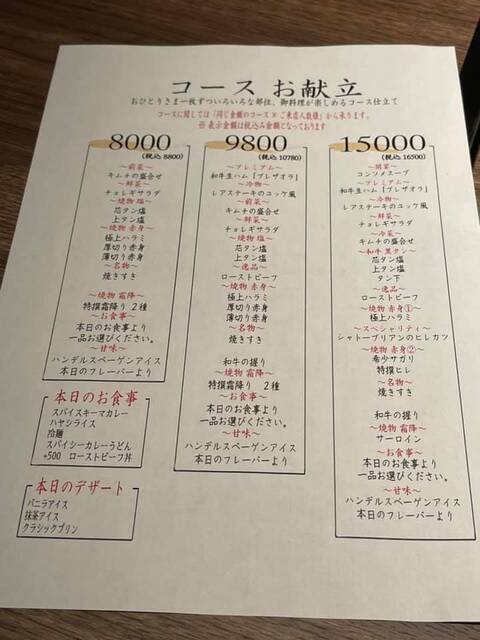 コース お献立
おひとりさま一枚ずついろいろな部位、御料理が楽しめるコース仕立て
コースに関しては「同じ金額のコース × ご来店人数様」から承ります。
※ 表示金額は税込み金額となっております
8000
(税込 8800)
～前菜～
キムチの盛合せ
～鮮菜～
チョレギサラダ
～焼物 塩～
芯タン塩
上タン塩
～焼物 赤身～
極上ハラミ
厚切り赤身
薄切り赤身
～名物～
焼きすき
～焼物 霜降～
特撰霜降り 2種
～お食事～
本日のお食事より
一品お選びください。
～甘味～
ハンデルスベーゲンアイス
本日のフレーバーより
本日のお食事
スパイスキーマカレー
ハヤシライス
冷麺
スパイシーカレーうどん
+500 ローストビーフ丼
本日のデザート
バニラアイス
抹茶アイス
クラシックプリン
9800
(税込 10780)
～プレミアム～
和牛生ハム「ブレザオラ」
～冷物～
レアステーキのユッケ風
～前菜～
キムチの盛合せ
～鮮菜～
チョレギサラダ
～焼物 塩～
芯タン塩
上タン塩
～逸品～
ローストビーフ
～焼物 赤身～
極上ハラミ
厚切り赤身
薄切り赤身
～名物～
焼きすき
和牛の握り
～焼物 霜降～
特撰霜降り 2種
～お食事～
本日のお食事より
一品お選びください。
～甘味～
ハンデルスベーゲンアイス
本日のフレーバーより
15000
(税込 16500)
コンソメスープ
～プレミアム～
和牛生ハム「ブレザオラ」
～冷物～
レアステーキのユッケ風
～鮮菜～
チョレギサラダ
～冷菜～
キムチの盛合せ
～和牛 黒タン～
芯タン塩
上タン塩
タン下
～逸品～
ローストビーフ
～焼物 赤身①～
極上ハラミ
～スペシャリティ～
シャトーブリアンのヒレカツ
～焼物 赤身②～
希少サガリ
特撰ヒレ
～名物～
焼きすき
和牛の握り
～焼物 霜降～
サーロイン
～お食事～
本日のお食事より
一品お選びください。
～甘味～
ハンデルスベーゲンアイス
本日のフレーバーより